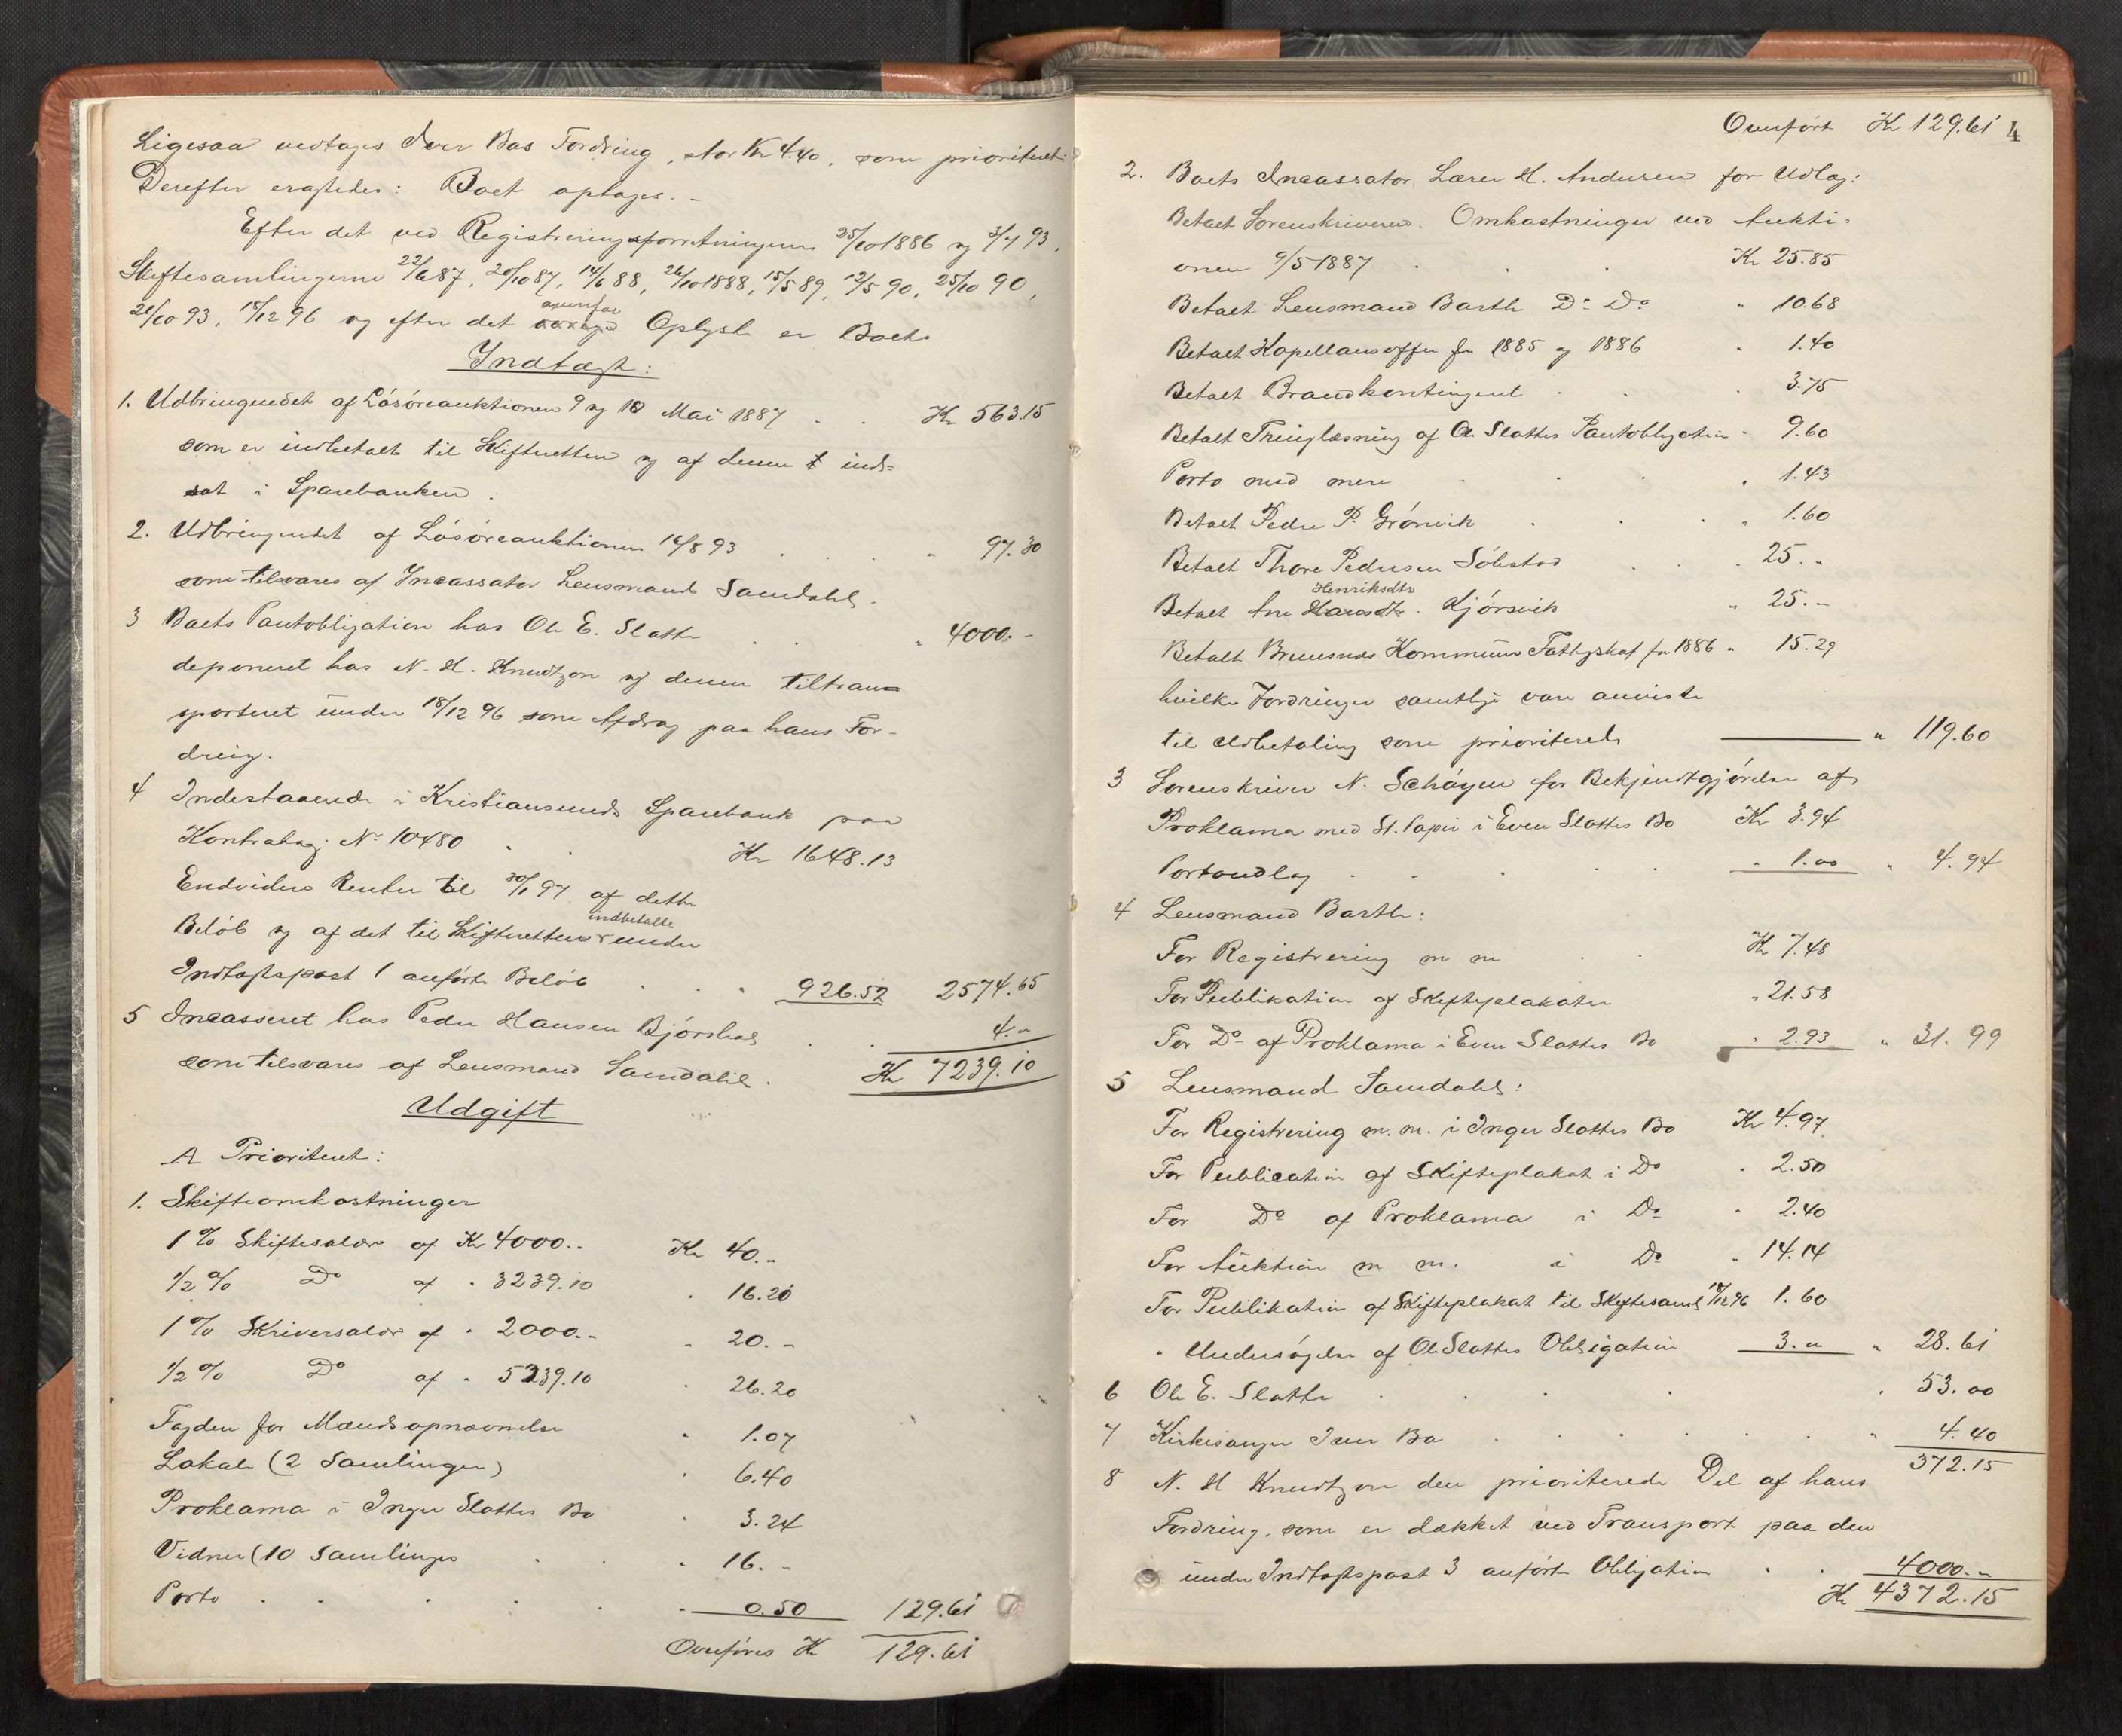 Ligesaa vedtages Iver Bøs Fordring, stor Kr 4.40, som prioriteret.
Derefter eragtedes: Boet optages. -
Efter det ved Registreringsforretningerne 25/10 1886 og 3/7 93,
Skiftesamlingerne 22/6 87, 20/10 87, 14/6 88, 26/10 1888, 15/5 89, 12/5 90, 25/10 90,
21/10 93, 18/12 96 og efter det ovenfor Oplyste er Boets
Indtægt:
1. Udbringendet af Løsøreauktionen 9 og 10 Mai 1887 . . Kr 563.15
som er indbetalt til Skifteretten og af denne ind=
sat i Sparebanken.
2. Udbringendet af Løsøreauktionen 16/8 93 . . . " 97.30
som tilsvares af Incassator Lensmand Samdahl.
3 Boets Pantobligation hos Ole E. Slatte . . " 4000.-
deponeret hos N. H. Knudtzon og denne tiltran=
sporteret under 18/12 96 som Afdrag paa hans For-
dring.
4 Indestaaende i Kristiansunds Sparebank paa
Kontrabog No 10480 . . Kr 1648.13
Endvidere Renter til 30/1 97 af dette
Beløb og af det til Skifteretten indbetalte under
Indtægtspost 1 anførte Beløb . . . 926.52 2574.65
5 Incasseret hos Peder Hansen Bjørshol . . 4.-
som tilsvares af Lensmand Samdahl. Kr 7239.10
Udgift
A Prioriteret:
1. Skifteomkostninger
1 % Skiftesalær af Kr 4000.. Kr 40.-
1/2 % Do af " 3239.10 " 16.20
1 % Skriversalær af " 2000.- " 20.-
1/2 % Do af " 5239.10 " 26.20
Fogden for Mændsopnævnelse " 1.07
Lokale (2 Samlinger) " 6.40
Proklama i Inger Slattes Bo " 3.24
Vidner (10 Samlinger . . " 16.-
Porto . . . . . " 0.50 129.61
Overføres Kr 129.61
Overført Kr 129.61 4
2. Boets Incassator, Lærer H. Andersen for Udlæg:
Betalt Sorenskriveren Omkostninger ved Aukti-
onen 9/5 1887 . . . Kr 25.85
Betalt Lensmand Barth Do Do " 10.68
Betalt Kapellansoffer for 1885 og 1886 " 1.40
Betalt Brandkontingent . . " 3.75
Betalt Thinglæsning af Ole Slattes Pantobligation " 9.60
Porto med mere . . . " 1.43
Betalt Peder P. Grønvik . . . " 1.60
Betalt Thore Pedersen Sølestad . . " 25.-
Betalt Ane Henriksdtr Kjørsvik " 25.-
Betalt Bremsnæs Kommune Fattigskat for 1886 " 15.29
hvilke Fordringer samtlige vare anviste
til Udbetaling som prioriterede " 119.60
3 Sorenskriver N. Schøyen for Bekjendtgjørelse af
Proklama med St. Papir i Even Slattes Bo Kr 3.94
Portoudlæg . . . . " 1.00 " 4.94
4 Lensmand Barth:
For Registrering m m . . Kr 7.48
For Publikation af Skifteplakater " 21.58
For Do af Proklama i Even Slattes Bo " 2.93 " 31.99
5 Lensmand Samdahl:
For Registrering m. m. i Inger Slattes Bo Kr 4.97
For Publication af Skifteplakat i Do " 2.50
For Do af Proklama i Do " 2.40
For Auktion m m. i Do " 14.14
For Publikation af Skifteplakat til Skiftesaml 18/12 96 1.60
" Undersøgelse af Ole Slattes Obligation 3.00 " 28.61
6 Ole E. Slatte . . . . " 53.00
7 Kirkesanger Iver Bø . . . . . " 4.40
372.15
8 N. H Knudtzon den prioriterede Del af hans
Fordring, som er dækket ved Transport paa den
under Indtægtspost 3 anførte Obligation . . 4000.-
Kr 4372.15